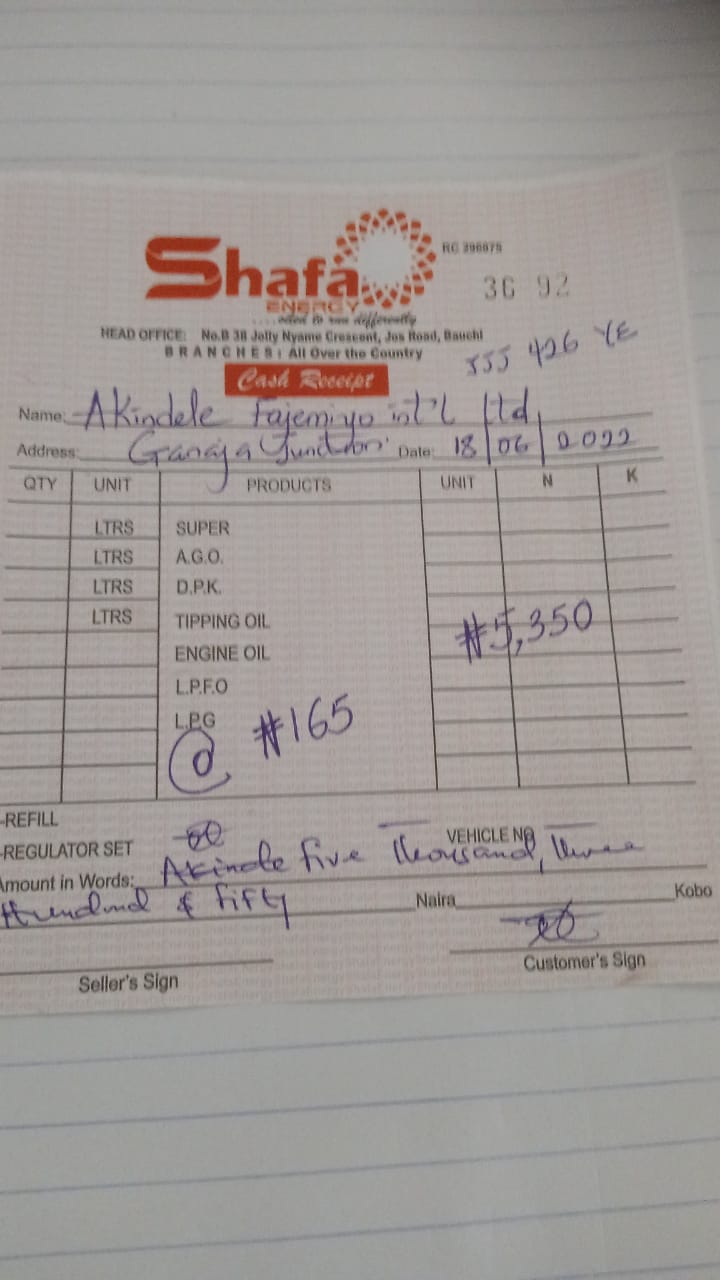 Shafa
RC 396875
ENERGY
36 92
HEAD OFFICE: No.B 38 Jolly Nyame Crescent, Jos Road, Bauchi
BRANCHES: All Over the Country
JJJ 426 YE
Cash Receipt
Name: Akindele Fajemiyo int'l Ltd
Address: Ganaja Junction Date: 18/06/2022
QTY UNIT PRODUCTS UNIT N K
LTRS SUPER
LTRS A.G.O.
LTRS D.P.K.
LTRS TIPPING OIL
₦5,350
ENGINE OIL
L.P.F.O
L.P.G
@ ₦165
-REFILL
-REGULATOR SET VEHICLE NO
Amount in Words: Akindele five thousand, three
Hundred & fifty Naira Kobo
Seller's Sign Customer's Sign